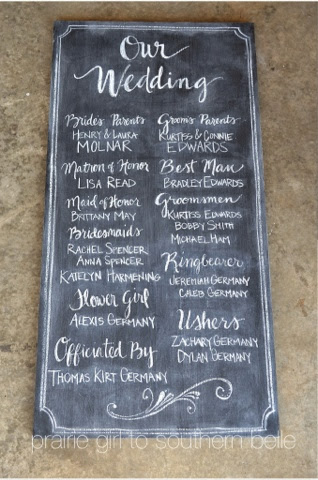 Our
Wedding
Brides Parents
Henry & Laura
Molnar
Matron of Honor
Lisa Read
Maid of Honor
Brittany May
Bridesmaids
Rachel Spencer
Anna Spencer
Katelyn Harmening
Flower Girl
Alexis Germany
Officiated By
Thomas Kirt Germany
Grooms Parents
Kurtiss & Connie
Edwards
Best Man
Bradley Edwards
Groomsmen
Kurtiss Edwards
Bobby Smith
Michael Ham
Ringbearer
Jeremiah Germany
Caleb Germany
Ushers
Zachary Germany
Dylan Germany
prairie girl to southern belle